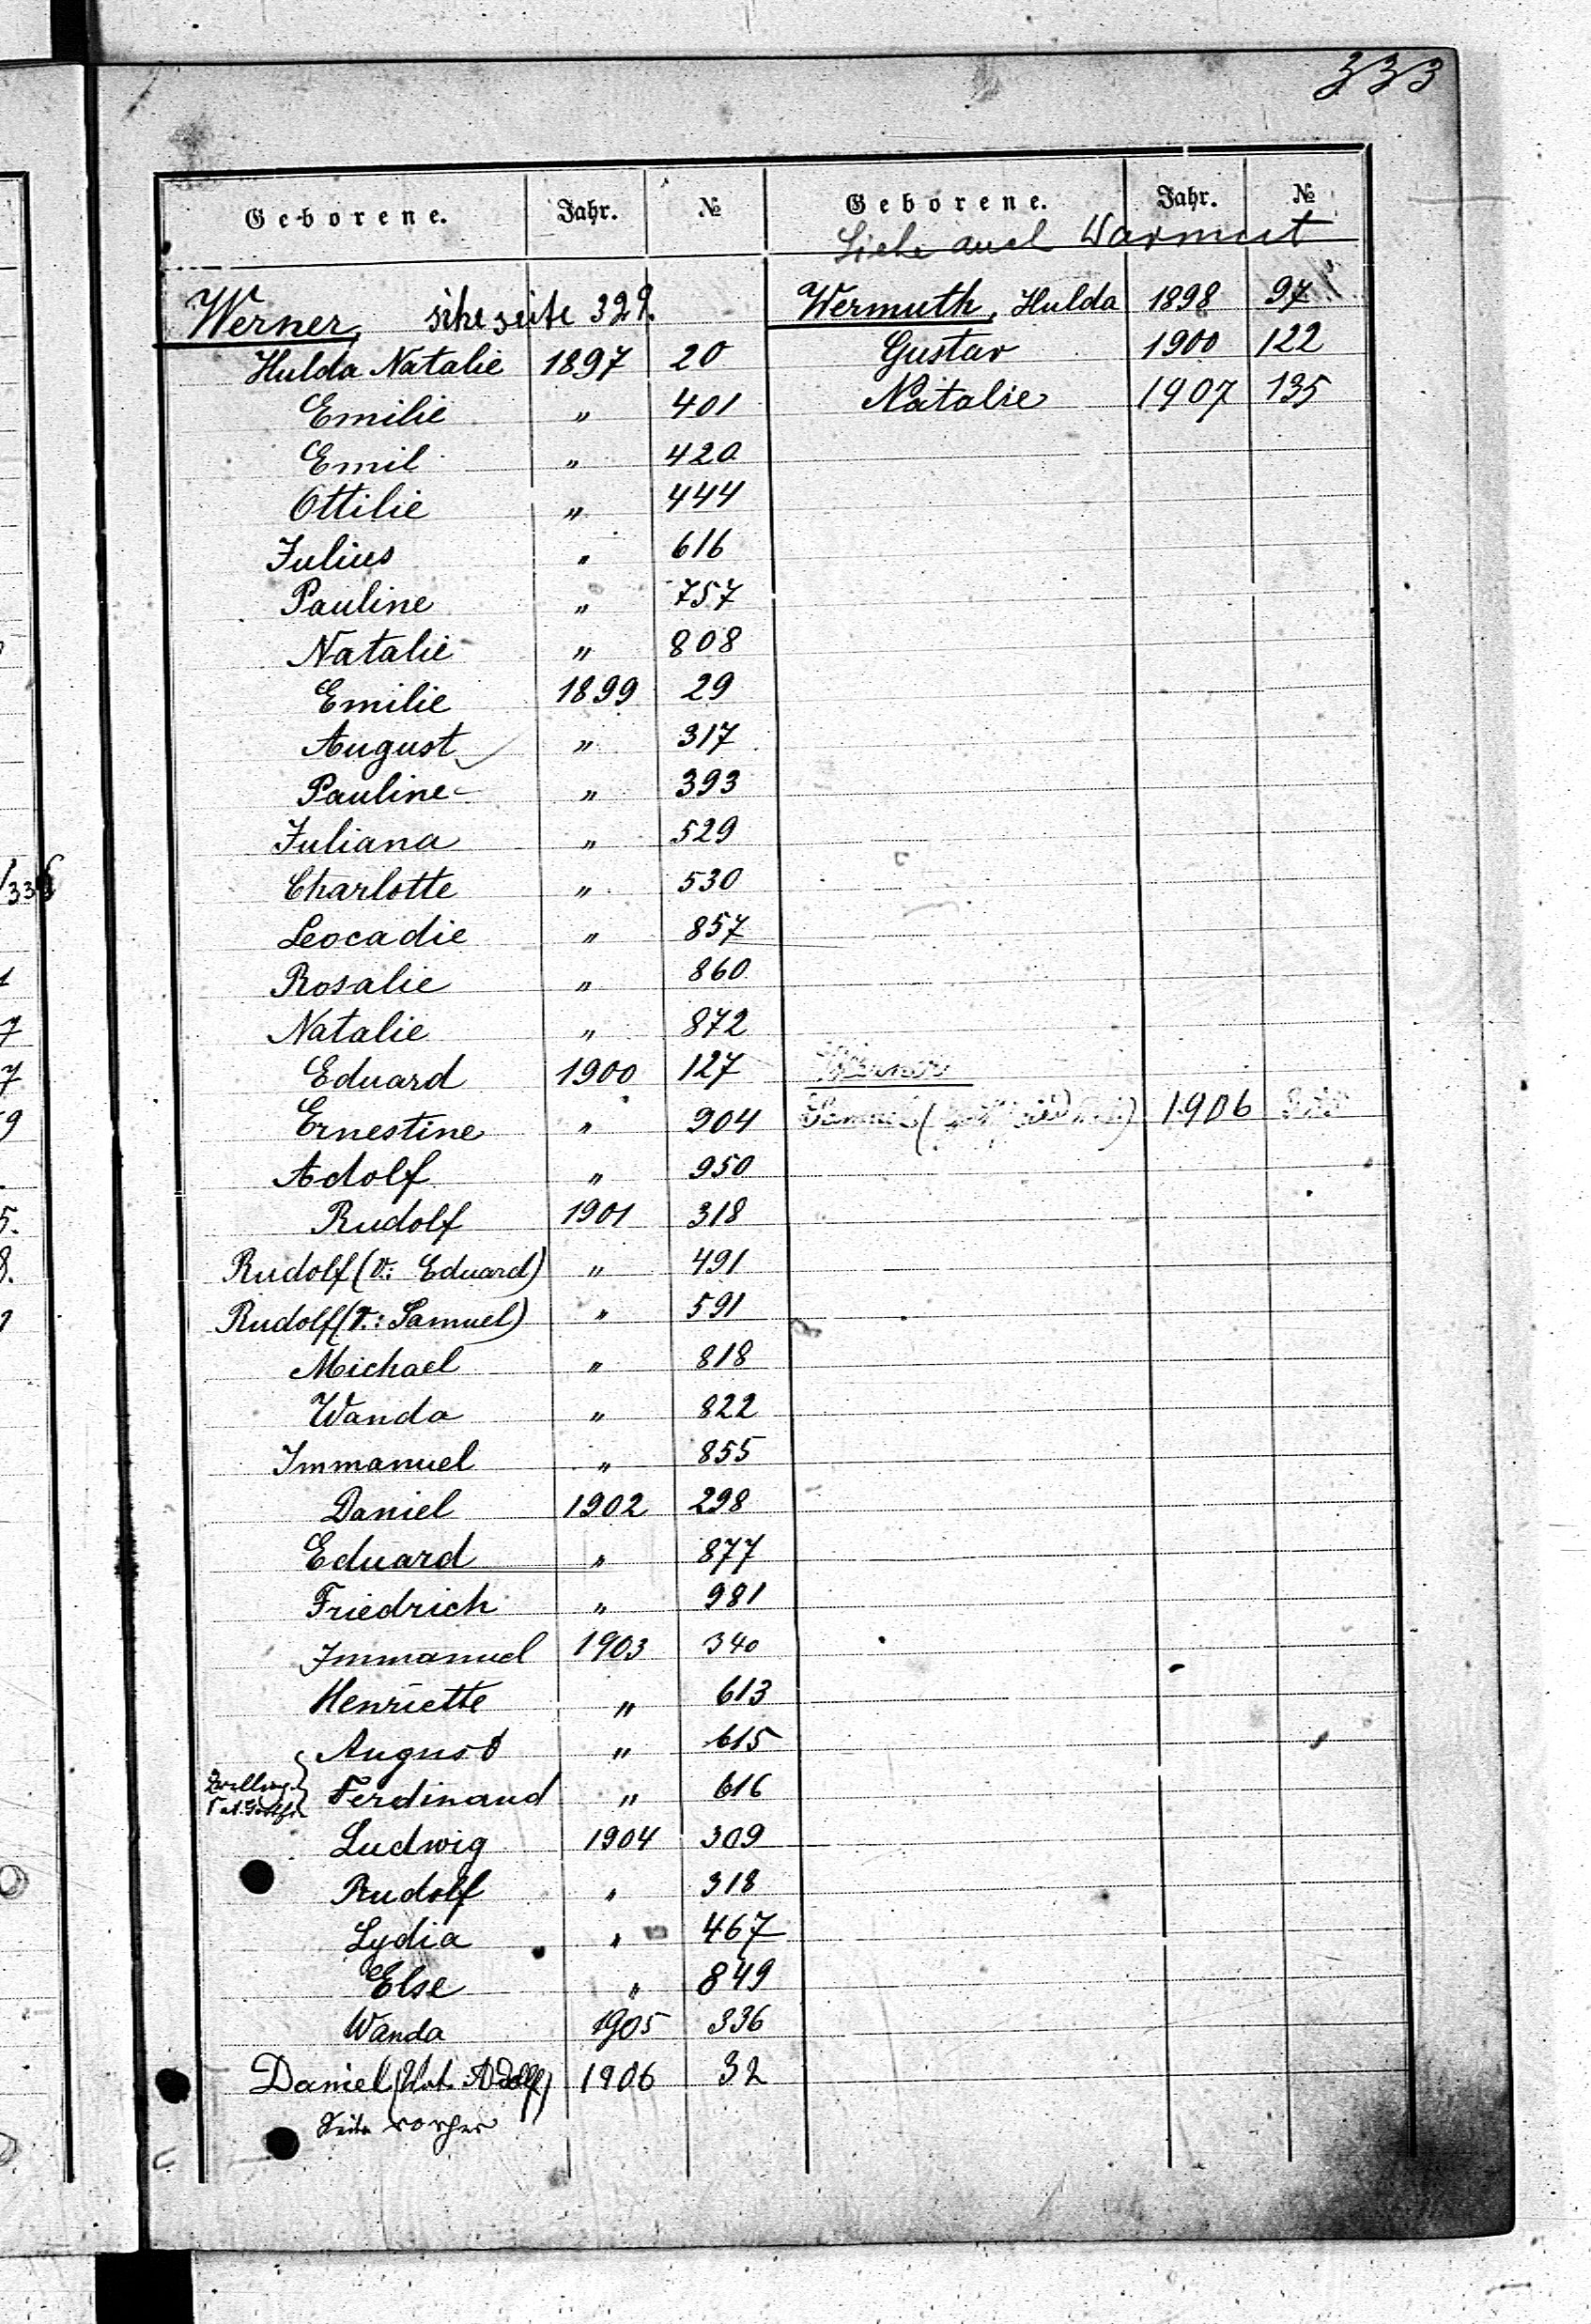 333
Geborene. Jahr. №
Werner, sihe seite 329.
Hulda Natalie 1897 20
Emilie " 401
Emil " 420
Ottilie " 444
Julius " 616
Pauline " 757
Natalie " 808
Emilie 1899 29
August " 317
Pauline " 393
Juliana " 529
Charlotte " 530
Leocadie " 857
Rosalie " 860
Natalie " 872
Eduard 1900 127
Ernestine " 904
Adolf " 950
Rudolf 1901 318
Rudolf (V.: Eduard) " 491
Rudolf (V.: Samuel) " 591
Michael " 818
Wanda " 822
Immanuel " 855
Daniel 1902 298
Eduard " 877
Friedrich " 981
Immanuel 1903 340
Henriette " 613
August " 615
Ferdinand " 616
Ludwig 1904 309
Rudolf " 318
Lydia " 467
Else " 849
Wanda 1905 336
Daniel (Vat. Adolf) 1906 32
Seite vorher
Geborene. Jahr. №
Siehe auch Warmut
Wermuth, Hulda 1898 97
Gustav 1900 122
Natalie 1907 135
Werner
Samuel 1906